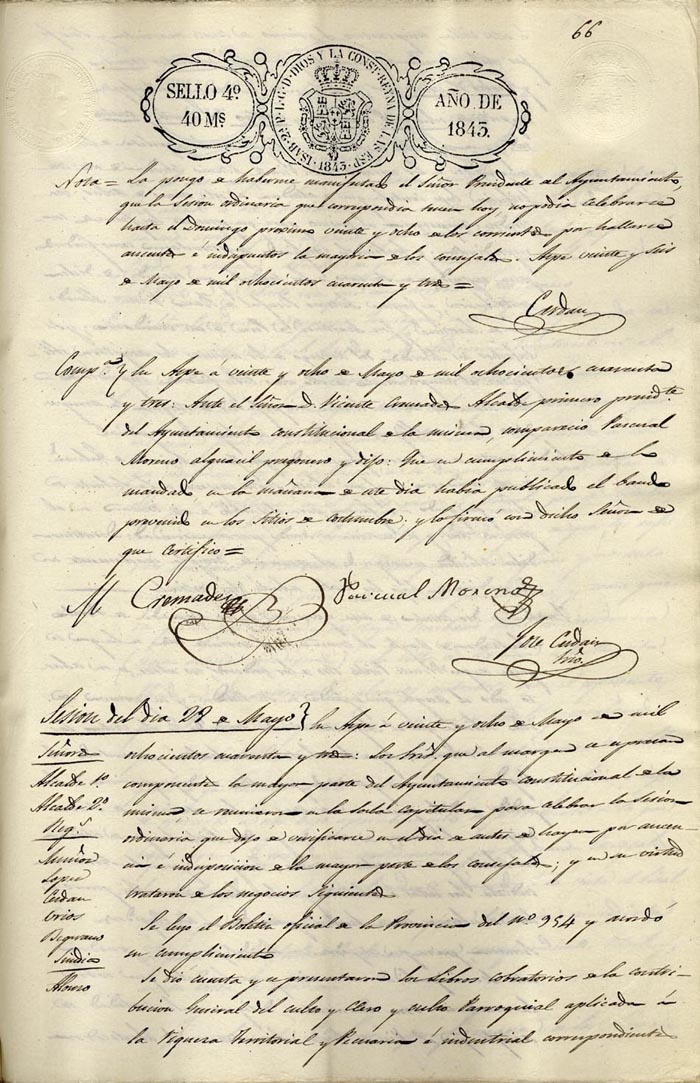 66
SELLO 4º
40 MS
ISAB. 2ª P. L. G. D. DIOS Y LA CONST. REYNA DE LAS ESP. 1843
AÑO DE
1843.
Nota = La pongo de haberme manifestado el Señor Presidente del Ayuntamiento,
que la sesion ordinaria que correspondia tener hoy, no podia celebrarse
hasta el Domingo proximo veinte y ocho de los corrientes por hallarse
ausentes é indispuestos la mayoria de los concejales. Aspe veinte y seis
de Mayo de mil ochocientos cuarenta y tres =
Cerdan
Comp.ª y En Aspe a veinte y ocho de Mayo de mil ochocientos cuarenta
y tres: Ante el Señor D. Vicente Cremades Alcalde primero presid.te
del Ayuntamiento constitucional de la misma, comparecio Pascual
Moreno alguacil pregonero y dijo: Que en cumplimiento de lo
mandado en la mañana de este dia habia publicado el bando
prevenido en los Sitios de costumbre: y lo firmó con dicho Señor de
que certifico =
Cremades
Pascual Moreno
Jose Cerdan
Srio.
Sesion del dia 28 de Mayo } En Aspe á veinte y ocho de Mayo de mil
Señores
ochocientos cuarenta y tres: Los Sres. que al margen se espresan
Alcalde 1º
componentes la mayor parte del Ayuntamiento constitucional de la
Alcalde 2º
misma se reunieron en la sala capitular para celebrar la sesion
Reg.s
ordinaria que dejo de verificarse en el dia de antes de hayer por ausen-
cia é indisposicion de la mayor parte de los concejales; y en su virtud
Lopez
trataron de los negocios siguientes
Cerdan
Se leyo el Boletin oficial de la Provincia del nº 954 y acordó
su cumplimiento
Sindico
Alonso
Se dio cuenta y se presentaron los Libros cobratorios de la contri-
bucion General del culto y Clero y culto Parroquial aplicada á
la Riqueza Territorial y Pecuaria é industrial correspondiente